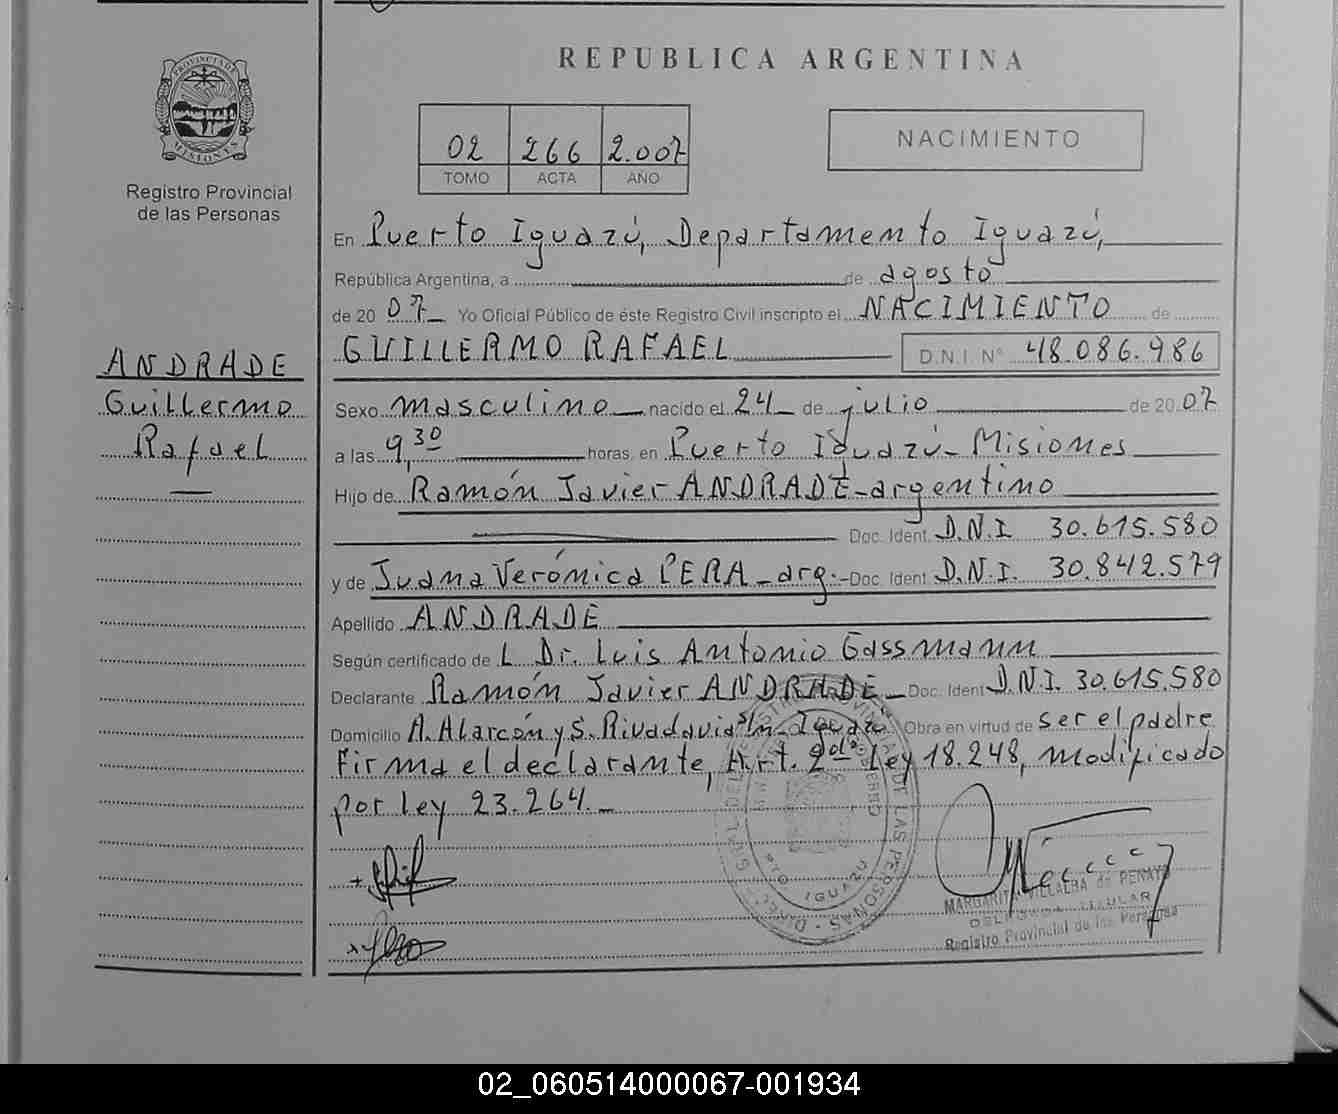 REPUBLICA ARGENTINA
PROVINCIA DE MISIONES
Registro Provincial
de las Personas
02 266 2.007
TOMO ACTA AÑO
NACIMIENTO
En Puerto Iguazú, Departamento Iguazú,
República Argentina, a de agosto
de 20 07 Yo Oficial Público de éste Registro Civil inscripto el NACIMIENTO de
GUILLERMO RAFAEL D.N.I. N° 48.086.986
ANDRADE
Guillermo
Rafael
Sexo masculino nacido el 24 de julio de 20 07
a las 9,30 horas, en Puerto Iguazú - Misiones
Hijo de Ramón Javier ANDRADE - argentino
Doc. Ident. D.N.I 30.615.580
y de Juana Verónica PERA - arg. - Doc. Ident D.N.I. 30.842.579
Apellido ANDRADE
Según certificado de L Dr. Luis Antonio Gassmann
Declarante Ramón Javier ANDRADE - Doc. Ident D.N.I. 30.615.580
Domicilio A. Alarcón y S. Rivadavia s/n - Iguazú Obra en virtud de ser el padre
Firma el declarante, Art. 2do Ley 18.248, modificado
por ley 23.264. -
PTO. IGUAZU
MARGARITA VILLALBA de PENAYO
DELEGADA TITULAR
Registro Provincial de las Personas
02_060514000067-001934